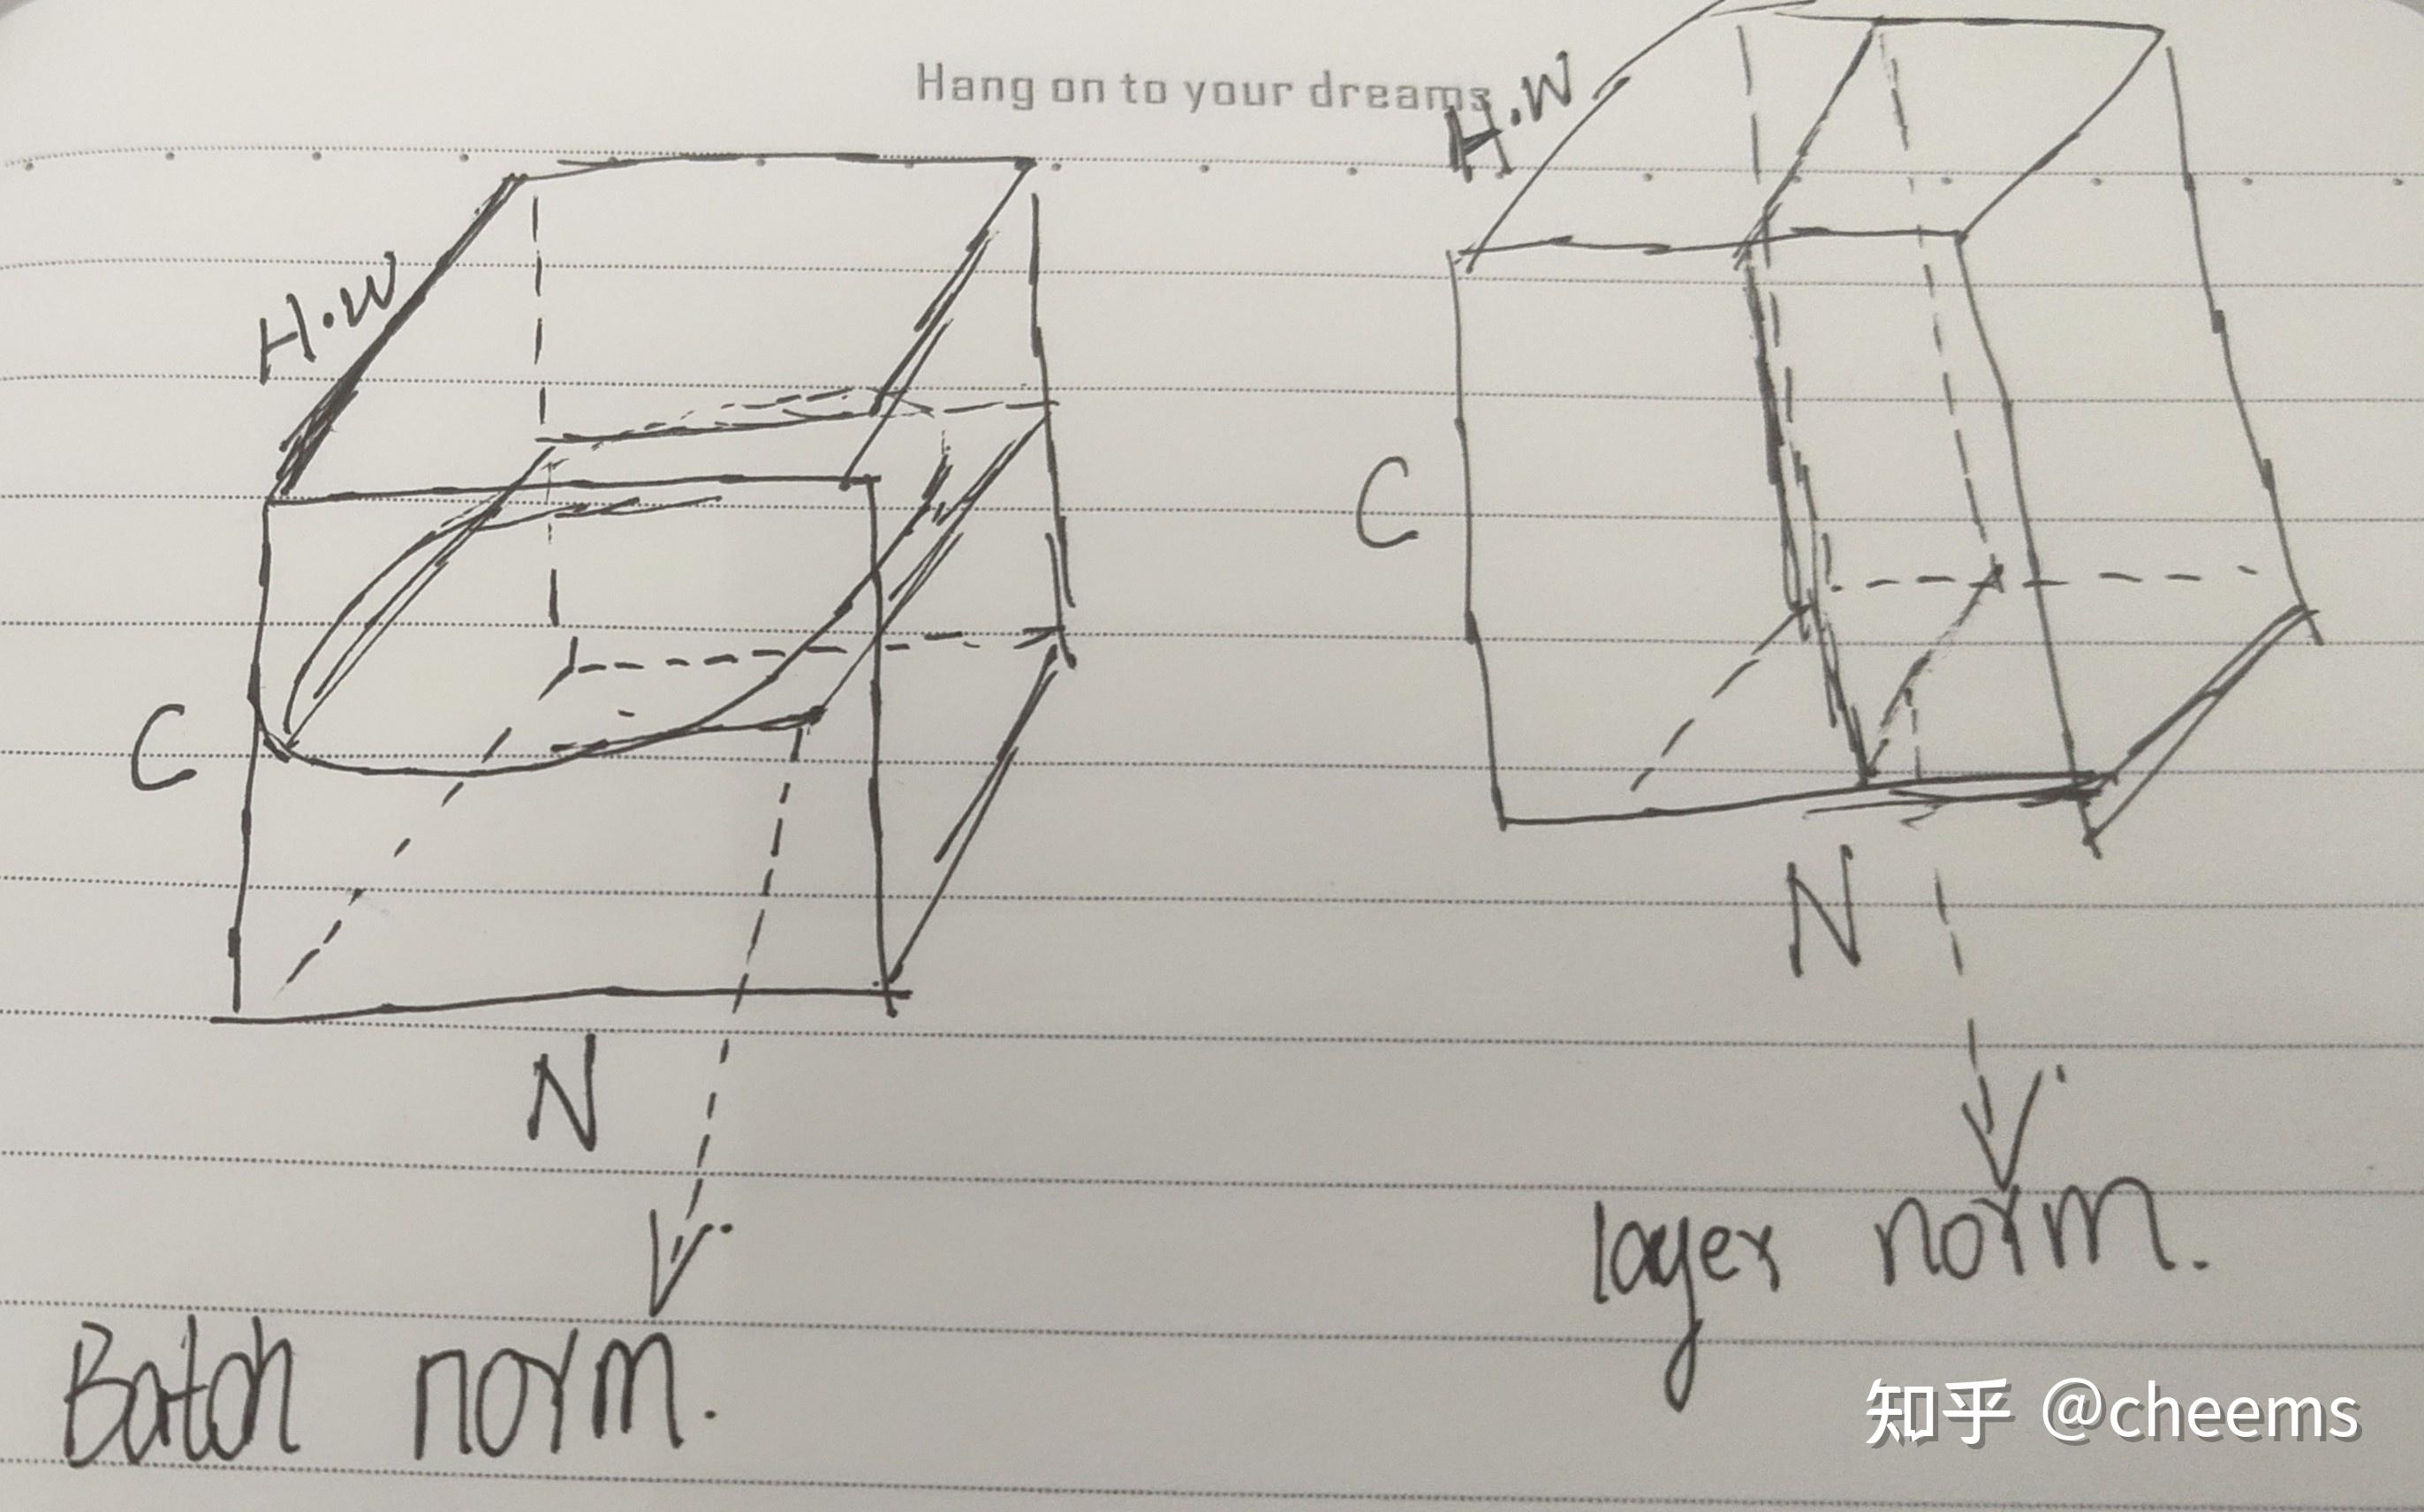 Hang on to your dreams
H·W
C
N
Batch norm.
H·W
C
N
layer norm.
知乎 @cheems